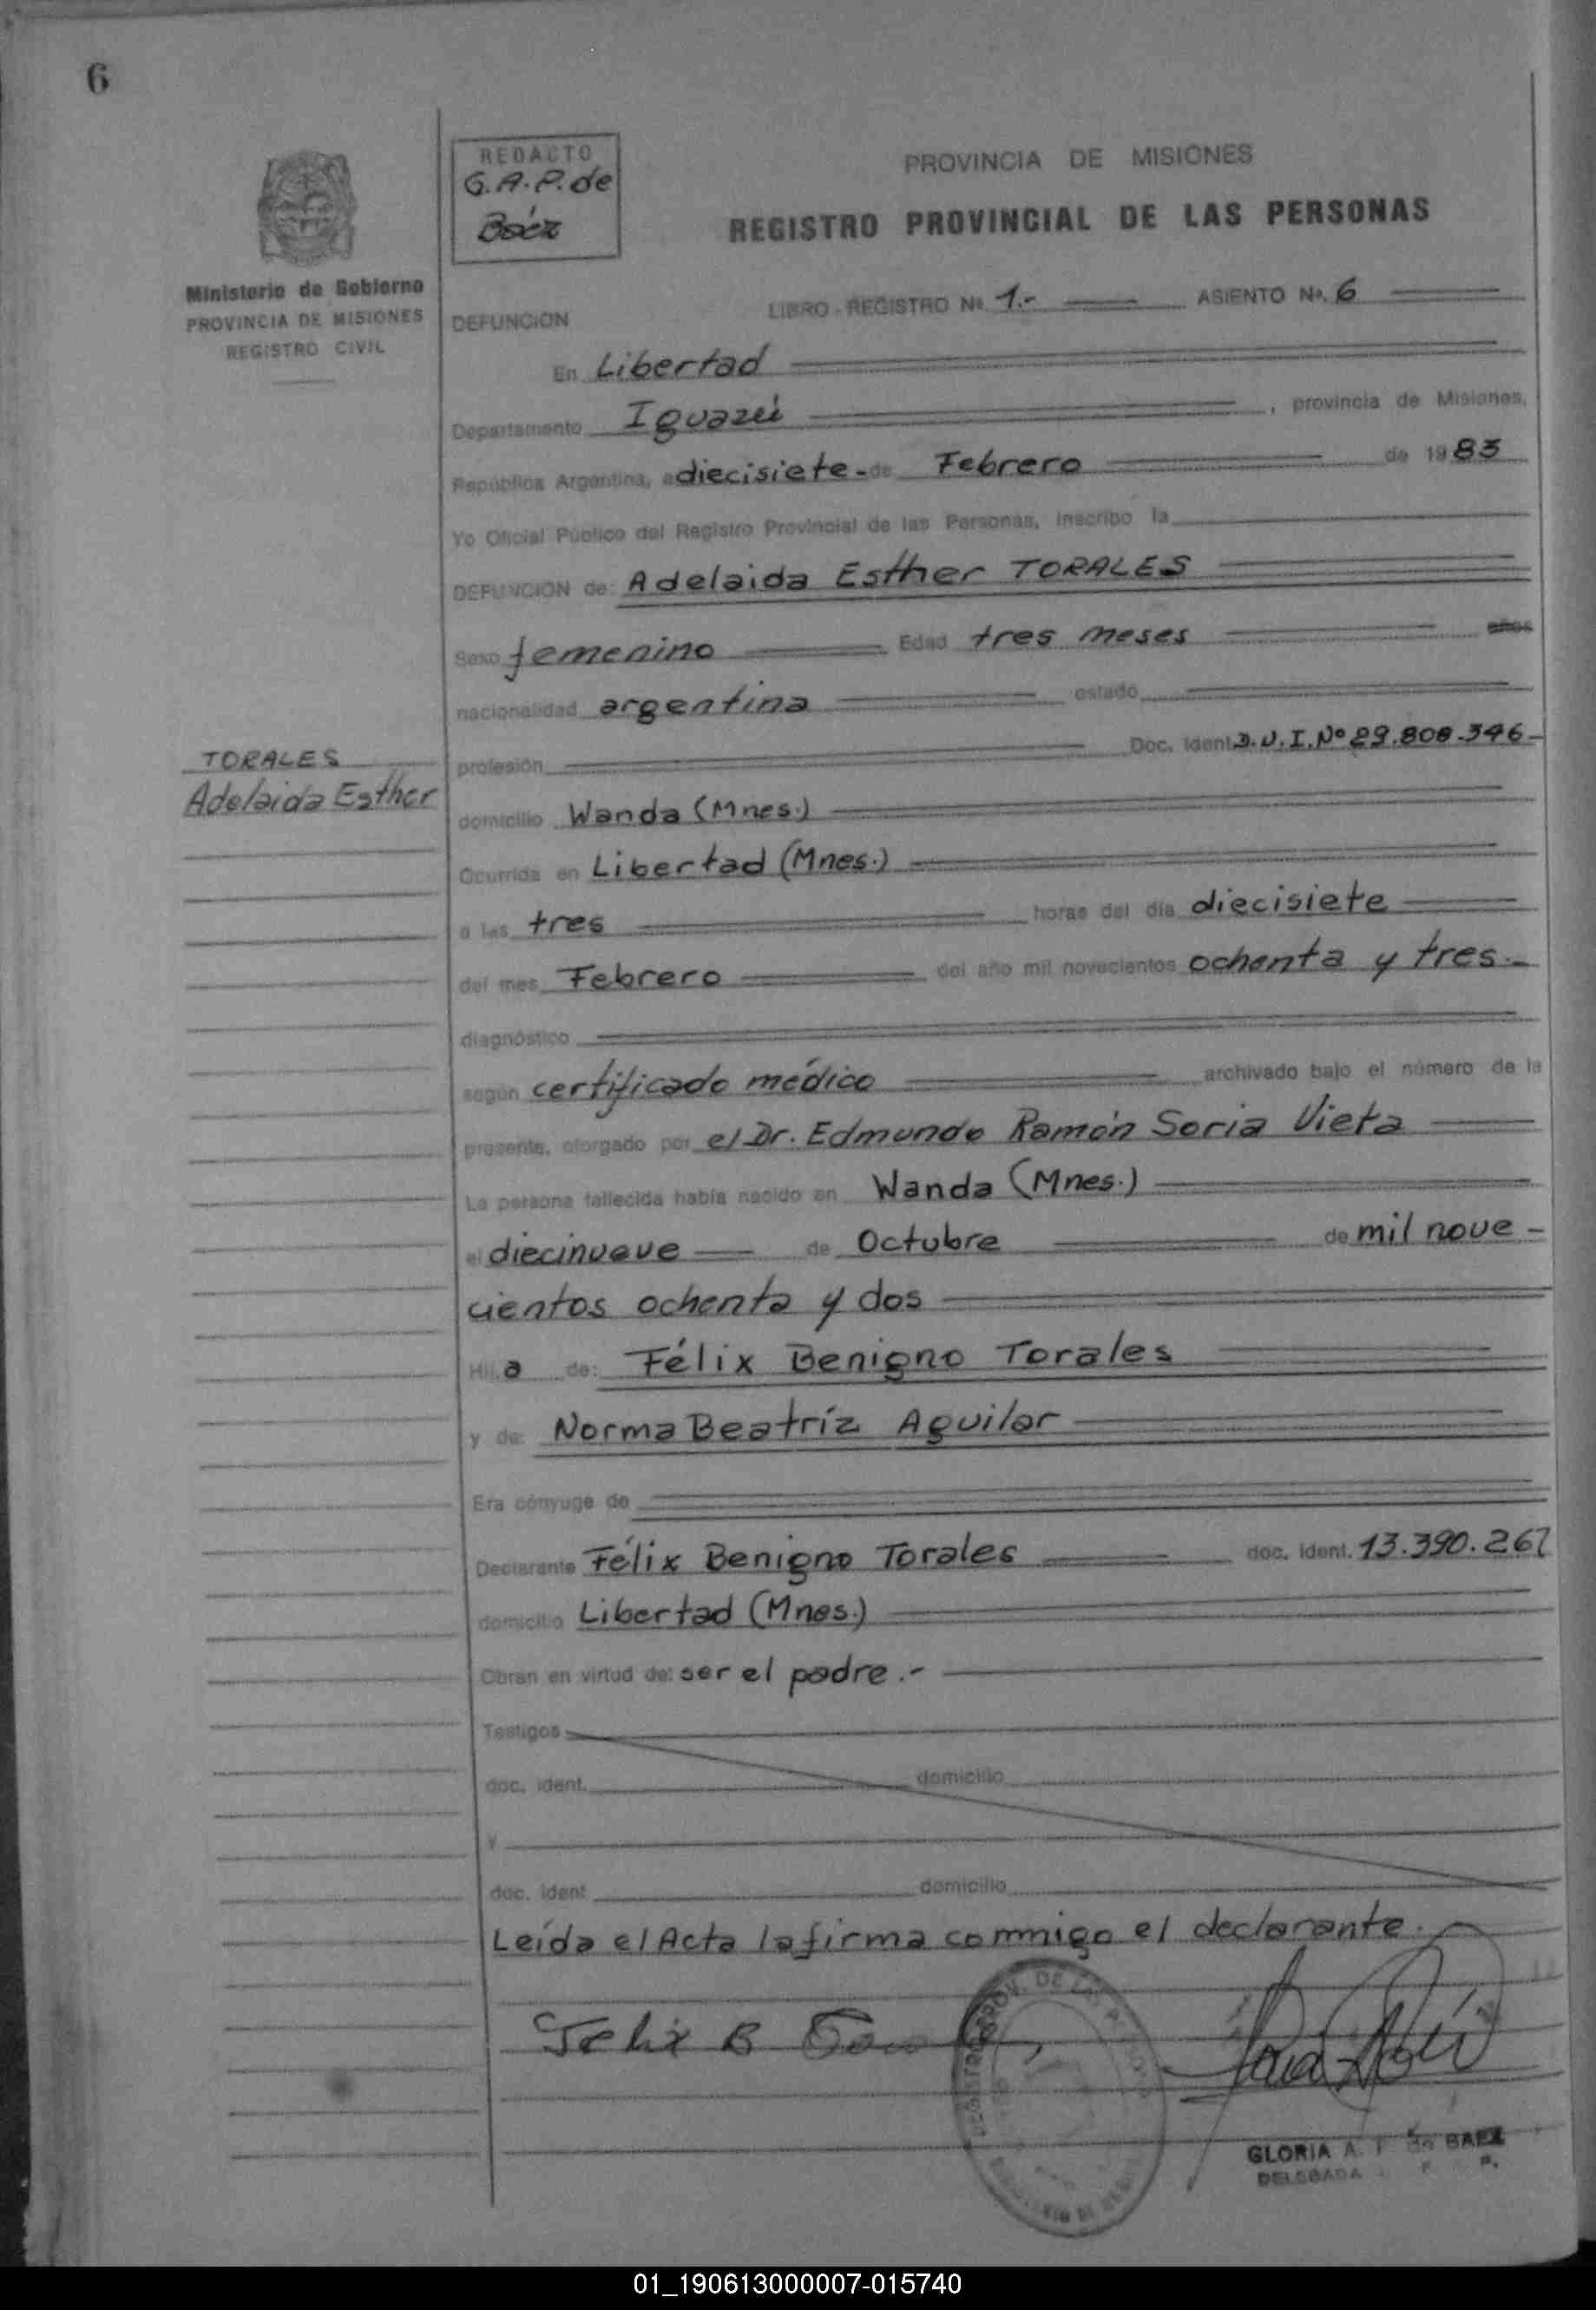 6
REDACTO
G.A.P. de
Báez
PROVINCIA DE MISIONES
REGISTRO PROVINCIAL DE LAS PERSONAS
Ministerio de Gobierno
PROVINCIA DE MISIONES
REGISTRO CIVIL
LIBRO - REGISTRO Nº 1.- ASIENTO Nº. 6
DEFUNCION
En Libertad
Departamento Iguazú, provincia de Misiones,
República Argentina, a diecisiete - de Febrero de 1983
Yo Oficial Público del Registro Provincial de las Personas, inscribo la
DEFUNCION de: Adelaida Esther TORALES
Sexo femenino Edad tres meses años
nacionalidad argentina estado
TORALES
Adelaida Esther
profesión Doc. Ident. D.U.I. Nº 29.808.346-
domicilio Wanda (Mnes.)
Ocurrida en Libertad (Mnes.)
a las tres horas del día diecisiete
del mes Febrero del año mil novecientos ochenta y tres.-
diagnóstico
según certificado médico archivado bajo el número de la
presente, otorgado por el Dr. Edmundo Ramón Soria Vieta
La persona fallecida había nacido en Wanda (Mnes.)
el diecinueve de Octubre de mil nove-
cientos ochenta y dos
Hij a de: Félix Benigno Torales
y de: Norma Beatríz Aguilar
Era cónyuge de
Declarante Félix Benigno Torales doc. ident. 13.390.267
domicilio Libertad (Mnes.)
Obran en virtud de: ser el padre.-
Testigos
doc. ident. domicilio
y
doc. ident domicilio
Leída el Acta la firma conmigo el declarante.
Felix B
GLORIA A. de BAEZ
DELEGADA
01_190613000007-015740